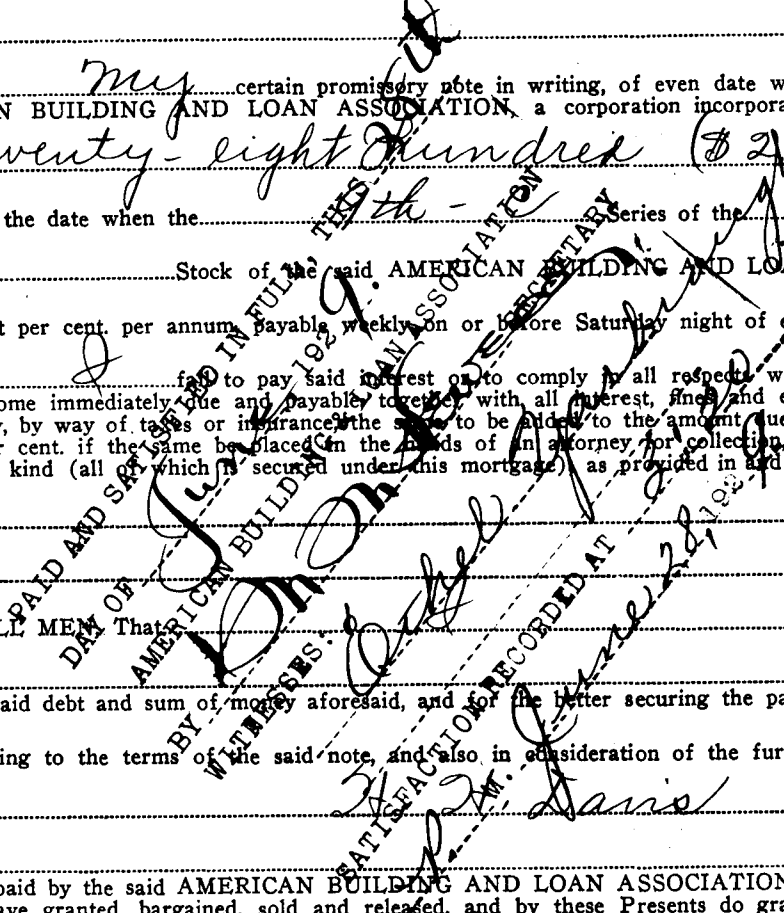 my certain promissory note in writing, of even date w
N BUILDING AND LOAN ASSOCIATION, a corporation incorpora
wenty-eight Hundred ($2
the date when the 7th Series of the
Stock of the said AMERICAN BUILDING AND LO
t per cent. per annum, payable weekly on or before Saturday night of e
I fail to pay said interest or to comply in all respects w
ome immediately due and payable, together with all interest, fines and e
, by way of taxes or insurance, the same to be added to the amount due
r cent. if the same be placed in the hands of an attorney for collection,
kind (all of which is secured under this mortgage), as provided in and
LL MEN, That
aid debt and sum of money aforesaid, and for the better securing the pa
ing to the terms of the said note, and also in consideration of the fur
Davis
paid by the said AMERICAN BUILDING AND LOAN ASSOCIATION
ave granted, bargained, sold and released, and by these Presents do gra
PAID AND SATISFIED IN FULL, THIS
DAY OF June 1929.
AMERICAN BUILDING & LOAN ASSOCIATION
BY SECRETARY
WITNESSES:
SATISFACTION RECORDED AT
P. M. June 28, 1929